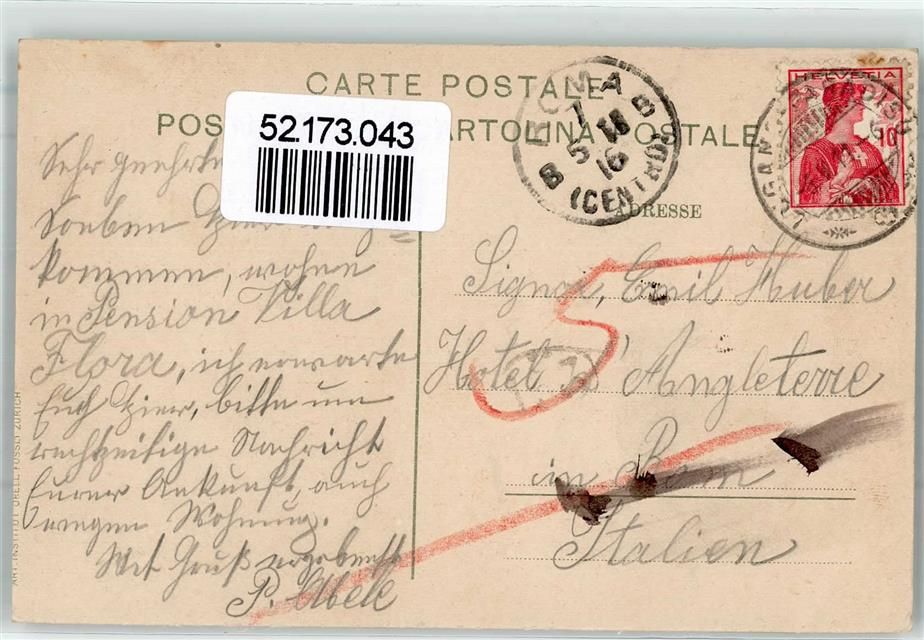 CARTE POSTALE
POS ARTOLINA POSTALE
52.173.043
ROMA
(CENTRO)
HELVETIA
10
LUGANO
ADRESSE
Sehr geehrte
Soeben hier ange=
kommen, wohne
in Pension Villa
Flora, ich erwarte
Euch hier, bitte um
rechtzeitige Nachricht
Eurer Ankunft, auch
wegen Wohnung.
Mit Gruß ergebenst
P. Abele
Signor, Emil Huber
Hotel d'Angleterre
in Rom
Italien
5
ART. INSTITUT ORELL FÜSSLI ZÜRICH